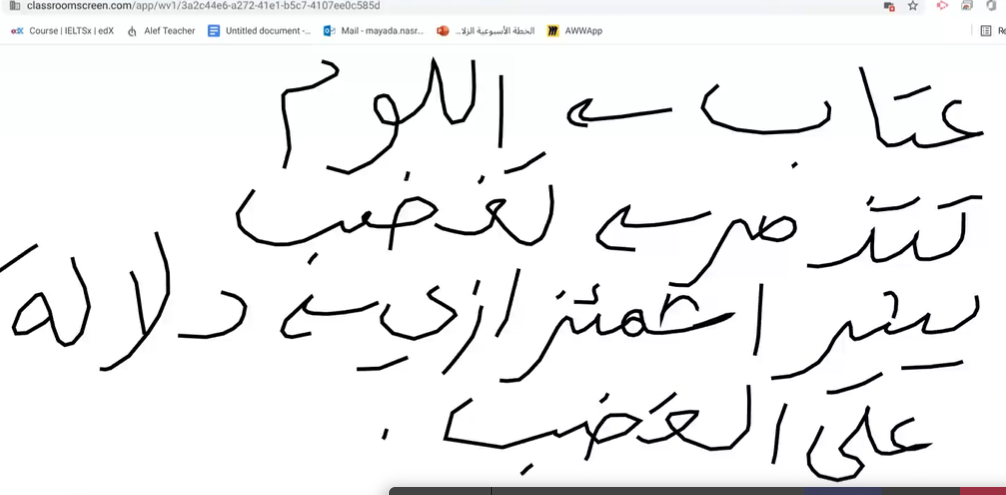 classroomscreen.com/app/wv1/3a2c44e6-a272-41e1-b5c7-4107ee0c585d
Course | IELTSx | edX Alef Teacher Untitled document -... Mail - mayada.nasr... الخطة الأسبوعية الزلا... AWWApp Re
عتاب ← اللوم
تتذمر ← تغضب
يثير اشمئزازي ← دلالة
على الغضب .